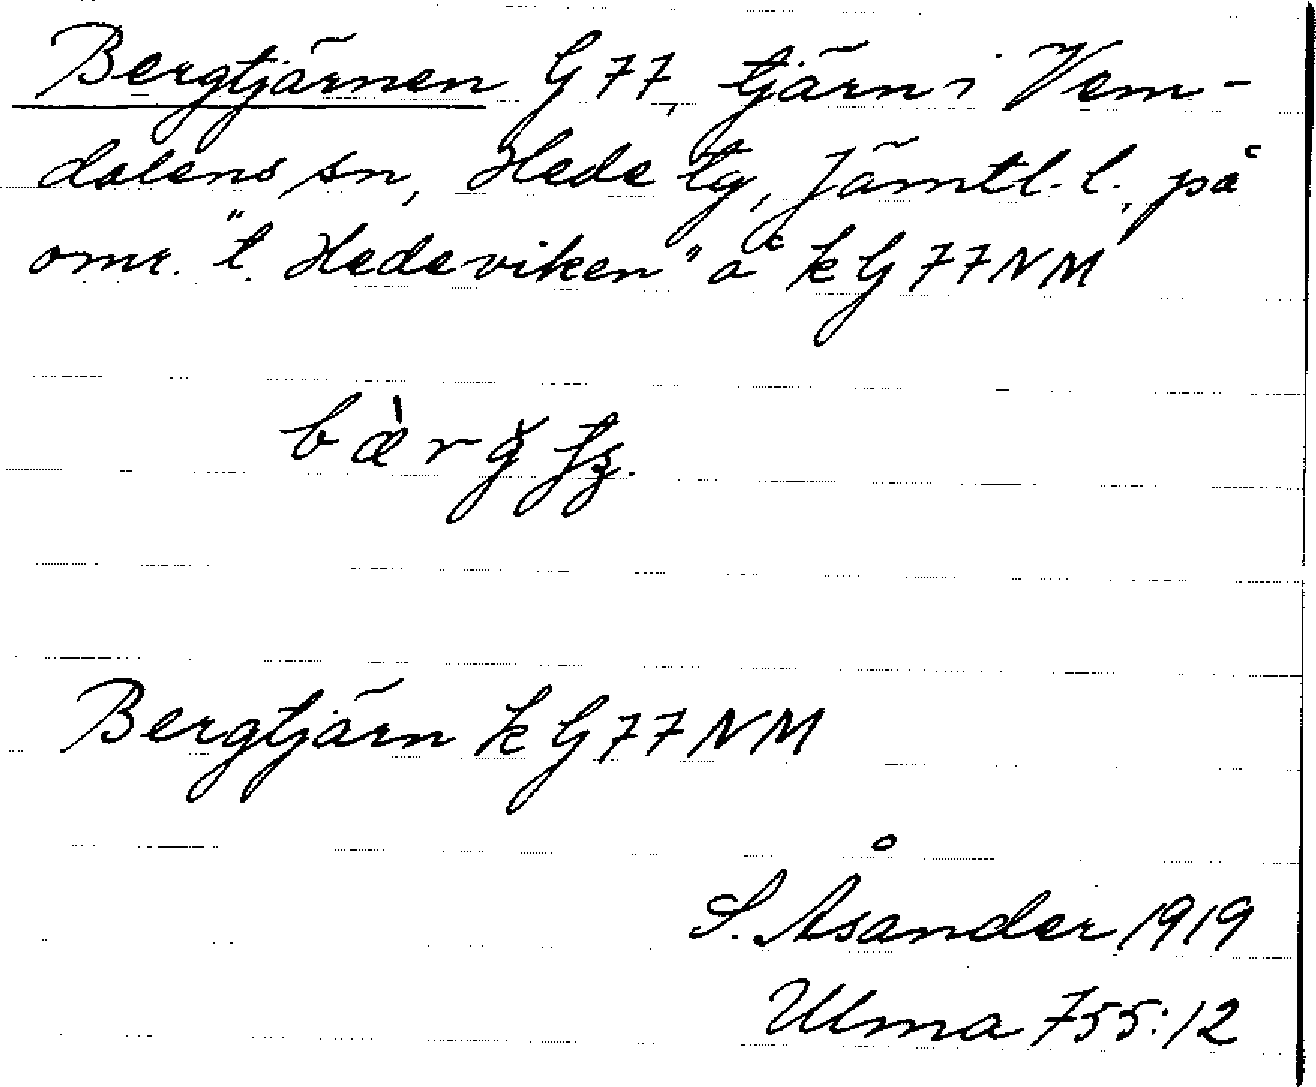 Bergtjärnen G 77, tjärn i Vem-
dalens sn, Hede tg, Jämtl. l., på
omr. "t. Hedeviken" å k G 77 NM
Bergtjärn k G 77 NM
S. Åsander 1919
Ulma 755:12